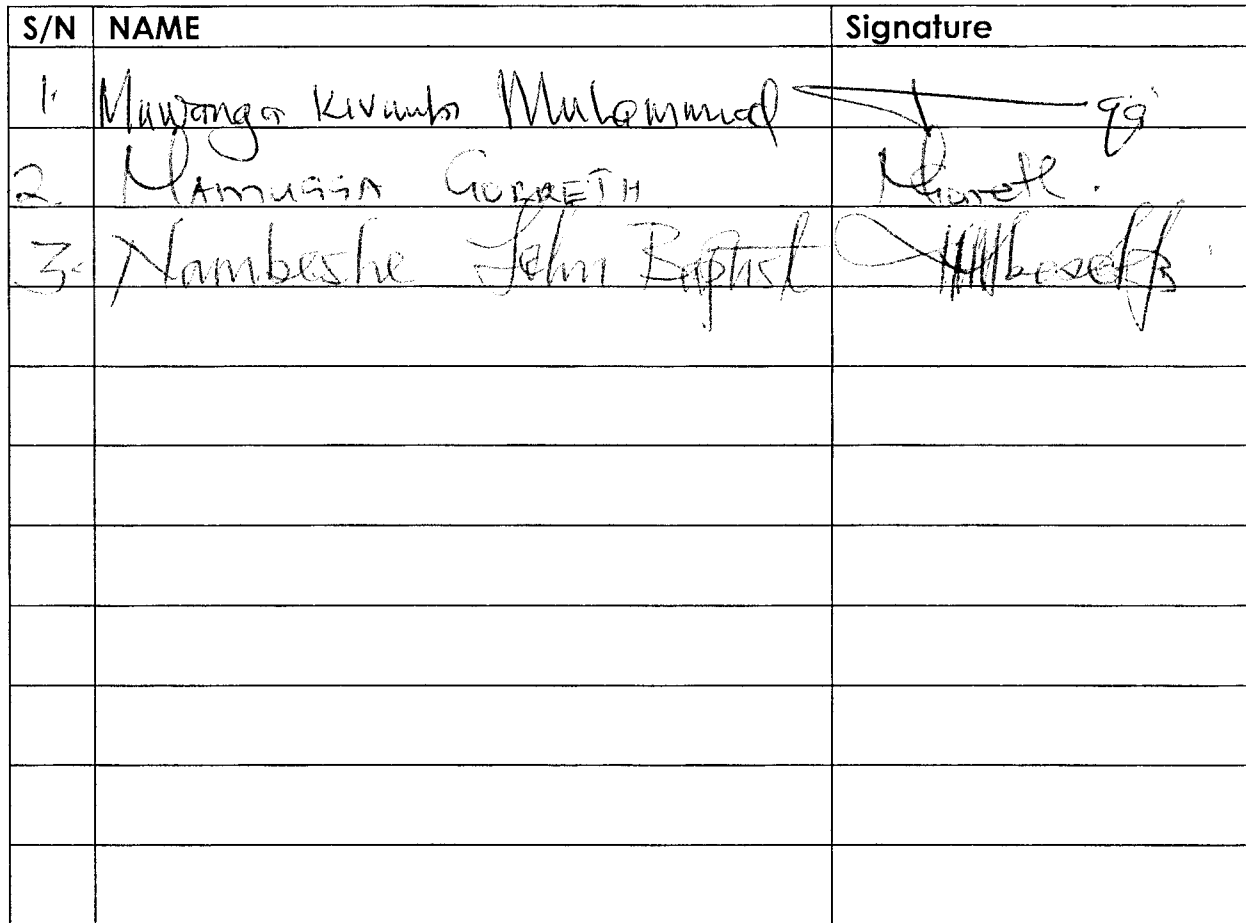 S/N NAME Signature
1. Muwanga Kivumbi Muhammad
2. Namugga Gorreth
3. Nambeshe John Baptist